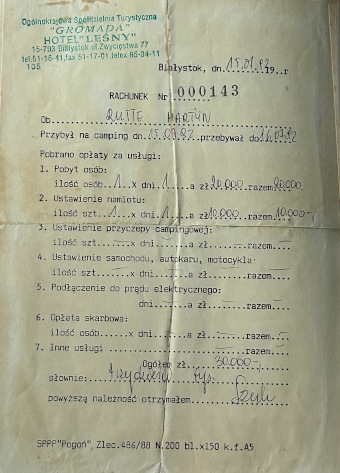 Ogólnokrajowa Spółdzielnia Turystyczna
"GROMADA"
HOTEL "LEŚNY"
15-703 Białystok ul. Zwycięstwa 77
tel. 51-16-41, fax 51-17-01, telex 85-34-11
105
Białystok, dn. 15.07.92 19..r
RACHUNEK Nr 000143
Ob. RUTTE MARTYN
Przybył na camping dn. 15.07.92 przebywał do 16.07.92
Pobrano opłaty za usługi:
1. Pobyt osób:
ilość osób..1..x dni.1....a zł 20.000 razem 20.000
2. Ustawienie namiotu:
ilość szt..1..x dni.1....a zł 10.000 razem 10.000-
3. Ustawienie przyczepy campingowej:
ilość szt.....x dni.....a zł.....razem....
4. Ustawienie samochodu, autokaru, motocykla
ilość szt.....x dni.....a zł.....razem....
5. Podłączenie do prądu elektrycznego:
dni.....a zł.....razem....
6. Opłata skarbowa:
ilość osób.....x dni.....a zł.....razem....
7. Inne usługi ..................razem....
Ogółem zł. 30.000.-
słownie: trzydzieści tys.
powyższą należność otrzymałem
SPPP "Pogoń", Zlec. 486/88 N.200 bl.x150 k.f.A5